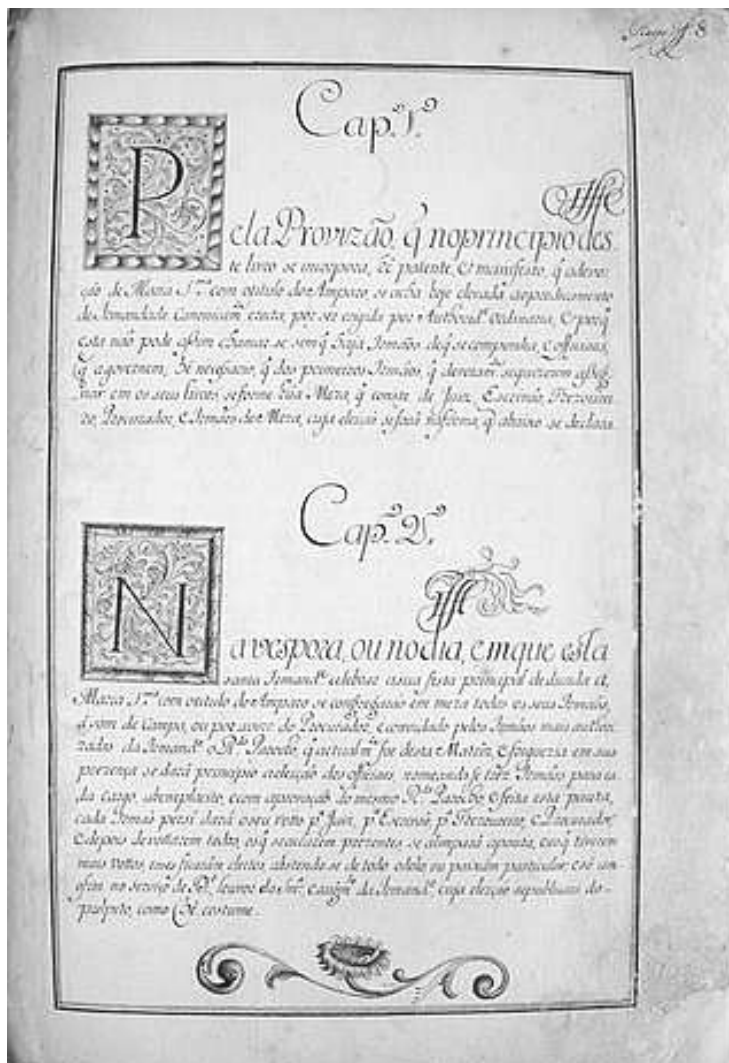 Cap.º 1.º
Pela Provizão, q̃ no principio des-
te livro se incorpora, hé patente, e manifesto, q̃ a devo-
ção de Maria S.ma com o titulo do Amparo, se acha hoje elevada a o predicamento
de Irmandade Canonicam.te erecta, por ser erigida por Authorid.e Ordinaria, e porq̃
esta não pode assim chamar se sem q̃ haja Irmãos de q̃ se componha, e officiaes,
q̃ a governem, hé necessario, q̃ dos primeiros Irmãos, q̃ se quizerem assig-
nar em os seus livros, se forme húa Meza, q̃ conste de Juiz, Escrivão, Thezourei-
ro, Procurador, e Irmãos de Meza, cuja eleição se fará na forma, q̃ abaixo se declara.
Cap.º 2.º
Na vespora, ou no dia, em que esta
santa Irmand.e celebrar a sua festa principal dedicada a
Maria S.ma com o titulo do Amparo se congregarão em meza todos os seus Irmãos,
á som de Campa, ou por avizo do Procurador, e convidado pelos Irmãos mais autho-
rizados da Irmand.e o R.do Parocho, q̃ actualm.te for desta Matriz, e freguezia em sua
prezença se dará principio a eleição dos officiaes, nomeando se tres Irmãos para ca-
da cargo, a beneplacito, e com aprovação do mesmo R.do Parocho, e feita esta pauta,
cada Irmão per si dará o seu votto p.a Juiz, p.a Escrivão, p.a Thezoureiro, e Procurador,
e depois de vottarem todos, os q̃ se acharem prezentes se alimpará a pauta, e os q̃ tiverem
mais vottos, esses ficarão eleitos, abstendo se de todo o dolo, ou paixão particular, e só
no serviço de D.s, louvor da S.ra, e augm.to da Irmand.e, cuja eleição se publicará do
pulpeto, como hé costume.